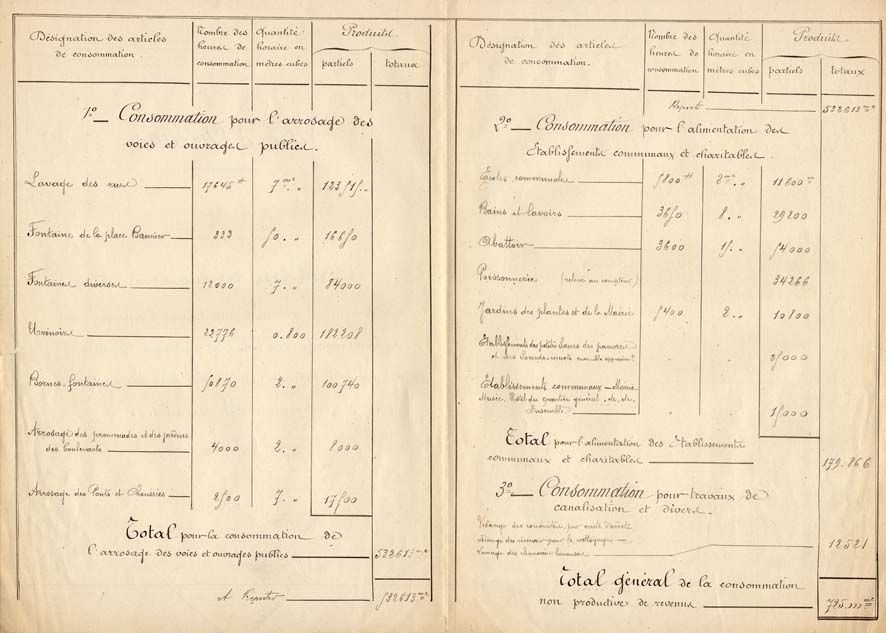 Désignation des articles de consommation. | Nombre des heures de consommation | Quantité horaire en mètres cubes | Produits partiels | totaux
1º Consommation pour l'arrosage des
voies et ouvrages publics.
Lavage des rues 17645 h 7 mc. " 123515. "
Fontaine de la place Bannier 333 50. " 16650
Fontaines diverses 12000 7. " 84000
Urinoirs 22776 0.800 182208
Bornes-fontaines 50870 2. " 100740
Arrosage des promenades et des jardins
des boulevarts 4000 2. " 8000
Arrosage des Ponts et Chaussées 2500 7. " 17500
Total pour la consommation de
l'arrosage des voies et ouvrages publics 532613 mc
A Reporter 532613 mc
Désignation des articles de consommation. | Nombre des heures de consommation | Quantité horaire en mètres cubes | Produits partiels | totaux
Report 532613 mc
2º Consommation pour l'alimentation des
Etablissements communaux et charitables.
Ecoles communales 5800 h 2 mc. " 11600 m
Bains et lavoirs 3650 8. " 29200
Abattoir 3600 15. " 54000
Poissonneries (relevé au compteur) 34266
Jardins des plantes et de la Mairie 5400 2. " 10800
Etablissements des petites Sœurs des pauvres
et des Sourds-muets ensemble 25000
Etablissements communaux - Mairie
Musée, Hôtel du quartier général, etc, etc.
Ensemble 15000
Total pour l'alimentation des Etablissements
communaux et charitables 179.866
3º Consommation pour travaux de
canalisation et divers.
Vidange des conduites, par suite d'arrêts
Vidange des réservoirs pour le nettoyage
Lavage des chaussées 12521
Total général de la consommation
non productive de revenus 725.000 mc